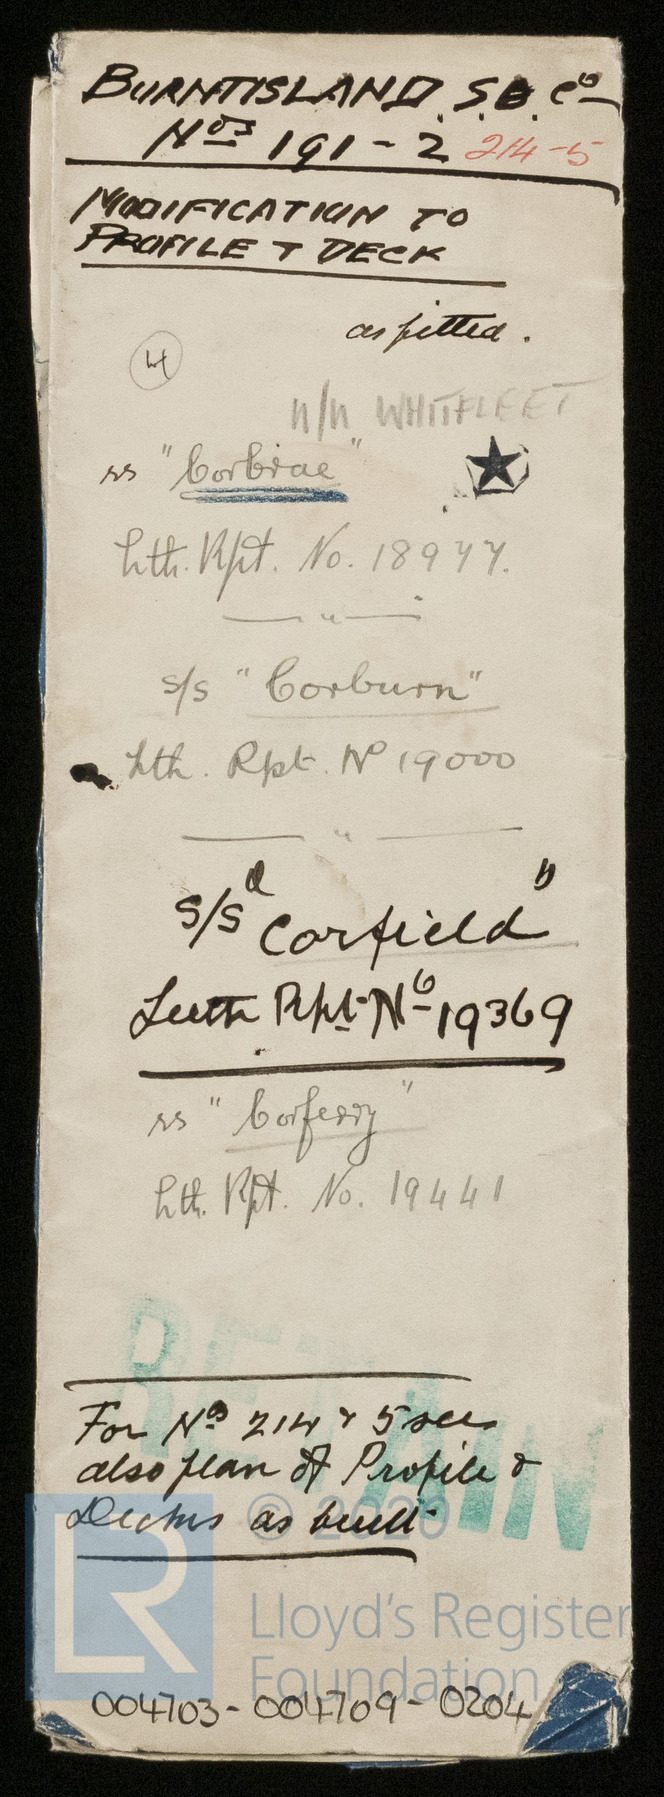 BURNTISLAND S.B. Co
Nos 191-2 214-5
MODIFICATION TO
PROFILE & DECK
as fitted.
4
n/n WHITFLEET
ss "Corbrae"
Lth. Rpt. No. 18977.
— " —
s/s "Corburn"
Lth. Rpt. No 19000
— " —
s/s "Corfield"
Leith Rpt. No 19369
ss "Corferry"
Lth. Rpt. No. 19441
RETAIN
For Nos 214 & 5 see
also plan of Profile &
Decks as built
© 2020
LR
Lloyd's Register
Foundation
004703-004709-0204